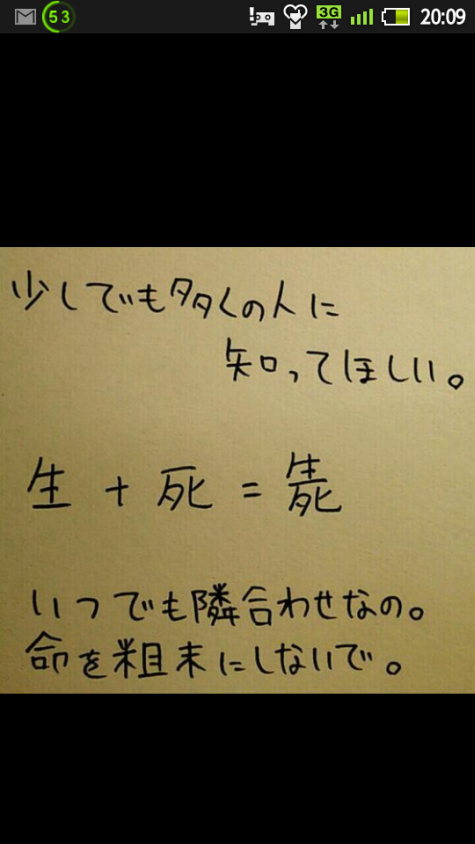 53
3G
20:09
少しでも多くの人に
知ってほしい。
生 + 死 = 毙
いつでも隣合わせなの。
命を粗末にしないで。